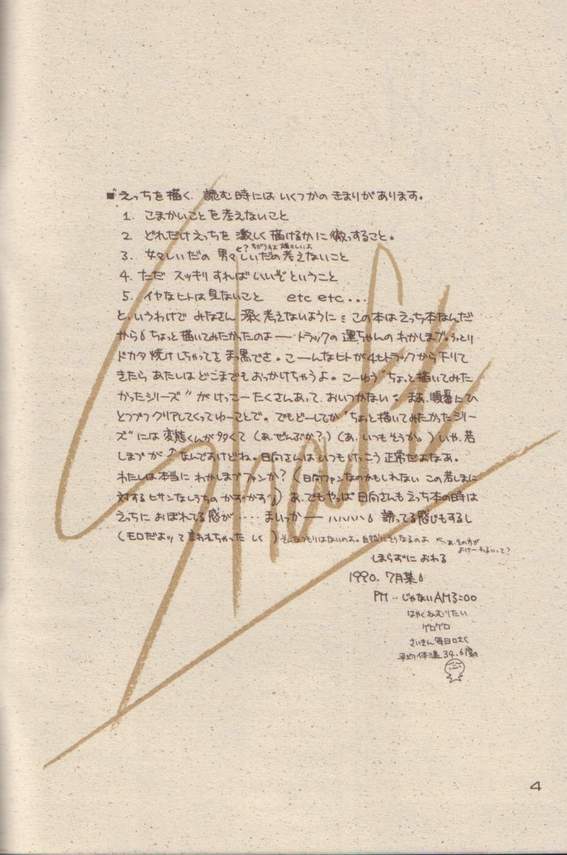 ■えっちを描く、読む時には いくつかの きまりがあります。
1. こまかいことを考えないこと
2 どれだけえっちを 激しく描けるかに徹っすること。
3. 女々しいだの 男々しいだの 考えないこと
4. ただ スッキリすればいいぞということ
5. イヤなヒトは見ないこと etc etc...
と、いうわけで みなさん 深く考えないように この本はえっち本なんだ
から ちょっと描いてみたかったのよ ── トラックの運ちゃんの わかしまづ。うっとり
ドカタ焼けしちゃってま黒でさ。こーんなヒトが4tトラックから下りて
きたら あたしはどこまでもおっかけちゃうよ。こーゆう"ちょっと描いてみた
かったシリーズ"が けっこーたくさんあって、おいつかない まあ、順番にひ
とつづつクリアしてくってゆーことで。でもどーしてか"ちょっと描いてみたかったシリー
ズ"には 変態くんが多くて (あ、ぜんぶか?) (あ、いつもそうか。) いや、若
しまづが なんですけどね。日向さんは いつもけっこう 正常だよなあ。
わたしは本当に わかしまづファンか? (日向ファンなのかもしれない この若しまに
対するヒサンなしうちの かずかず) あ、でもやっぱ 日向さんも えっち本の時は
えっちに おぼれてる感が‥‥ まいっかー ハハハハ 誘ってる感じもするし
(モロだよって 言われちゃった しく) そんなつもりはないのよ。
しまらずに おわる
1990. 7月某
PM‥じゃないAM3:00
はやくねむりたい
ゲロゲロ
さいきん毎日ロさく
平均体温34.6度の
Shade
4